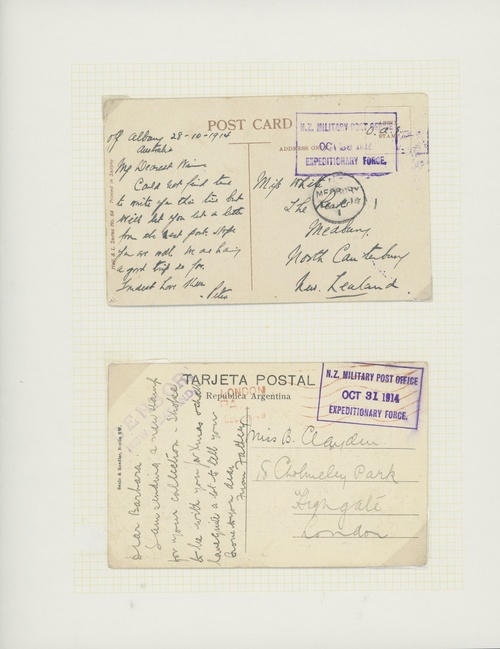 POST CARD
off Albany 28-10-1914
Australia
My Dearest
Could not find time
to write you this time but
will let you have a letter
from the next port. Hope
you are well. We are having
a good trip so far.
Fondest love
Peter
ADDRESS ON
N.Z. MILITARY POST OFFICE
OCT 1914
EXPEDITIONARY FORCE.
O.A.S.
STAMP
Miss White
The
Medbury
North Canterbury
New Zealand
MEDBURY
TARJETA POSTAL
República Argentina
LONDON
N.Z. MILITARY POST OFFICE
OCT 31 1914
EXPEDITIONARY FORCE.
Dear Barbara
I am sending a new stamp
for your collection. Hope
to be with you Xmas
have quite a lot to tell you
Love to you dear
From Father
Miss B. Clayden
8 Cholmeley Park
Highgate
London